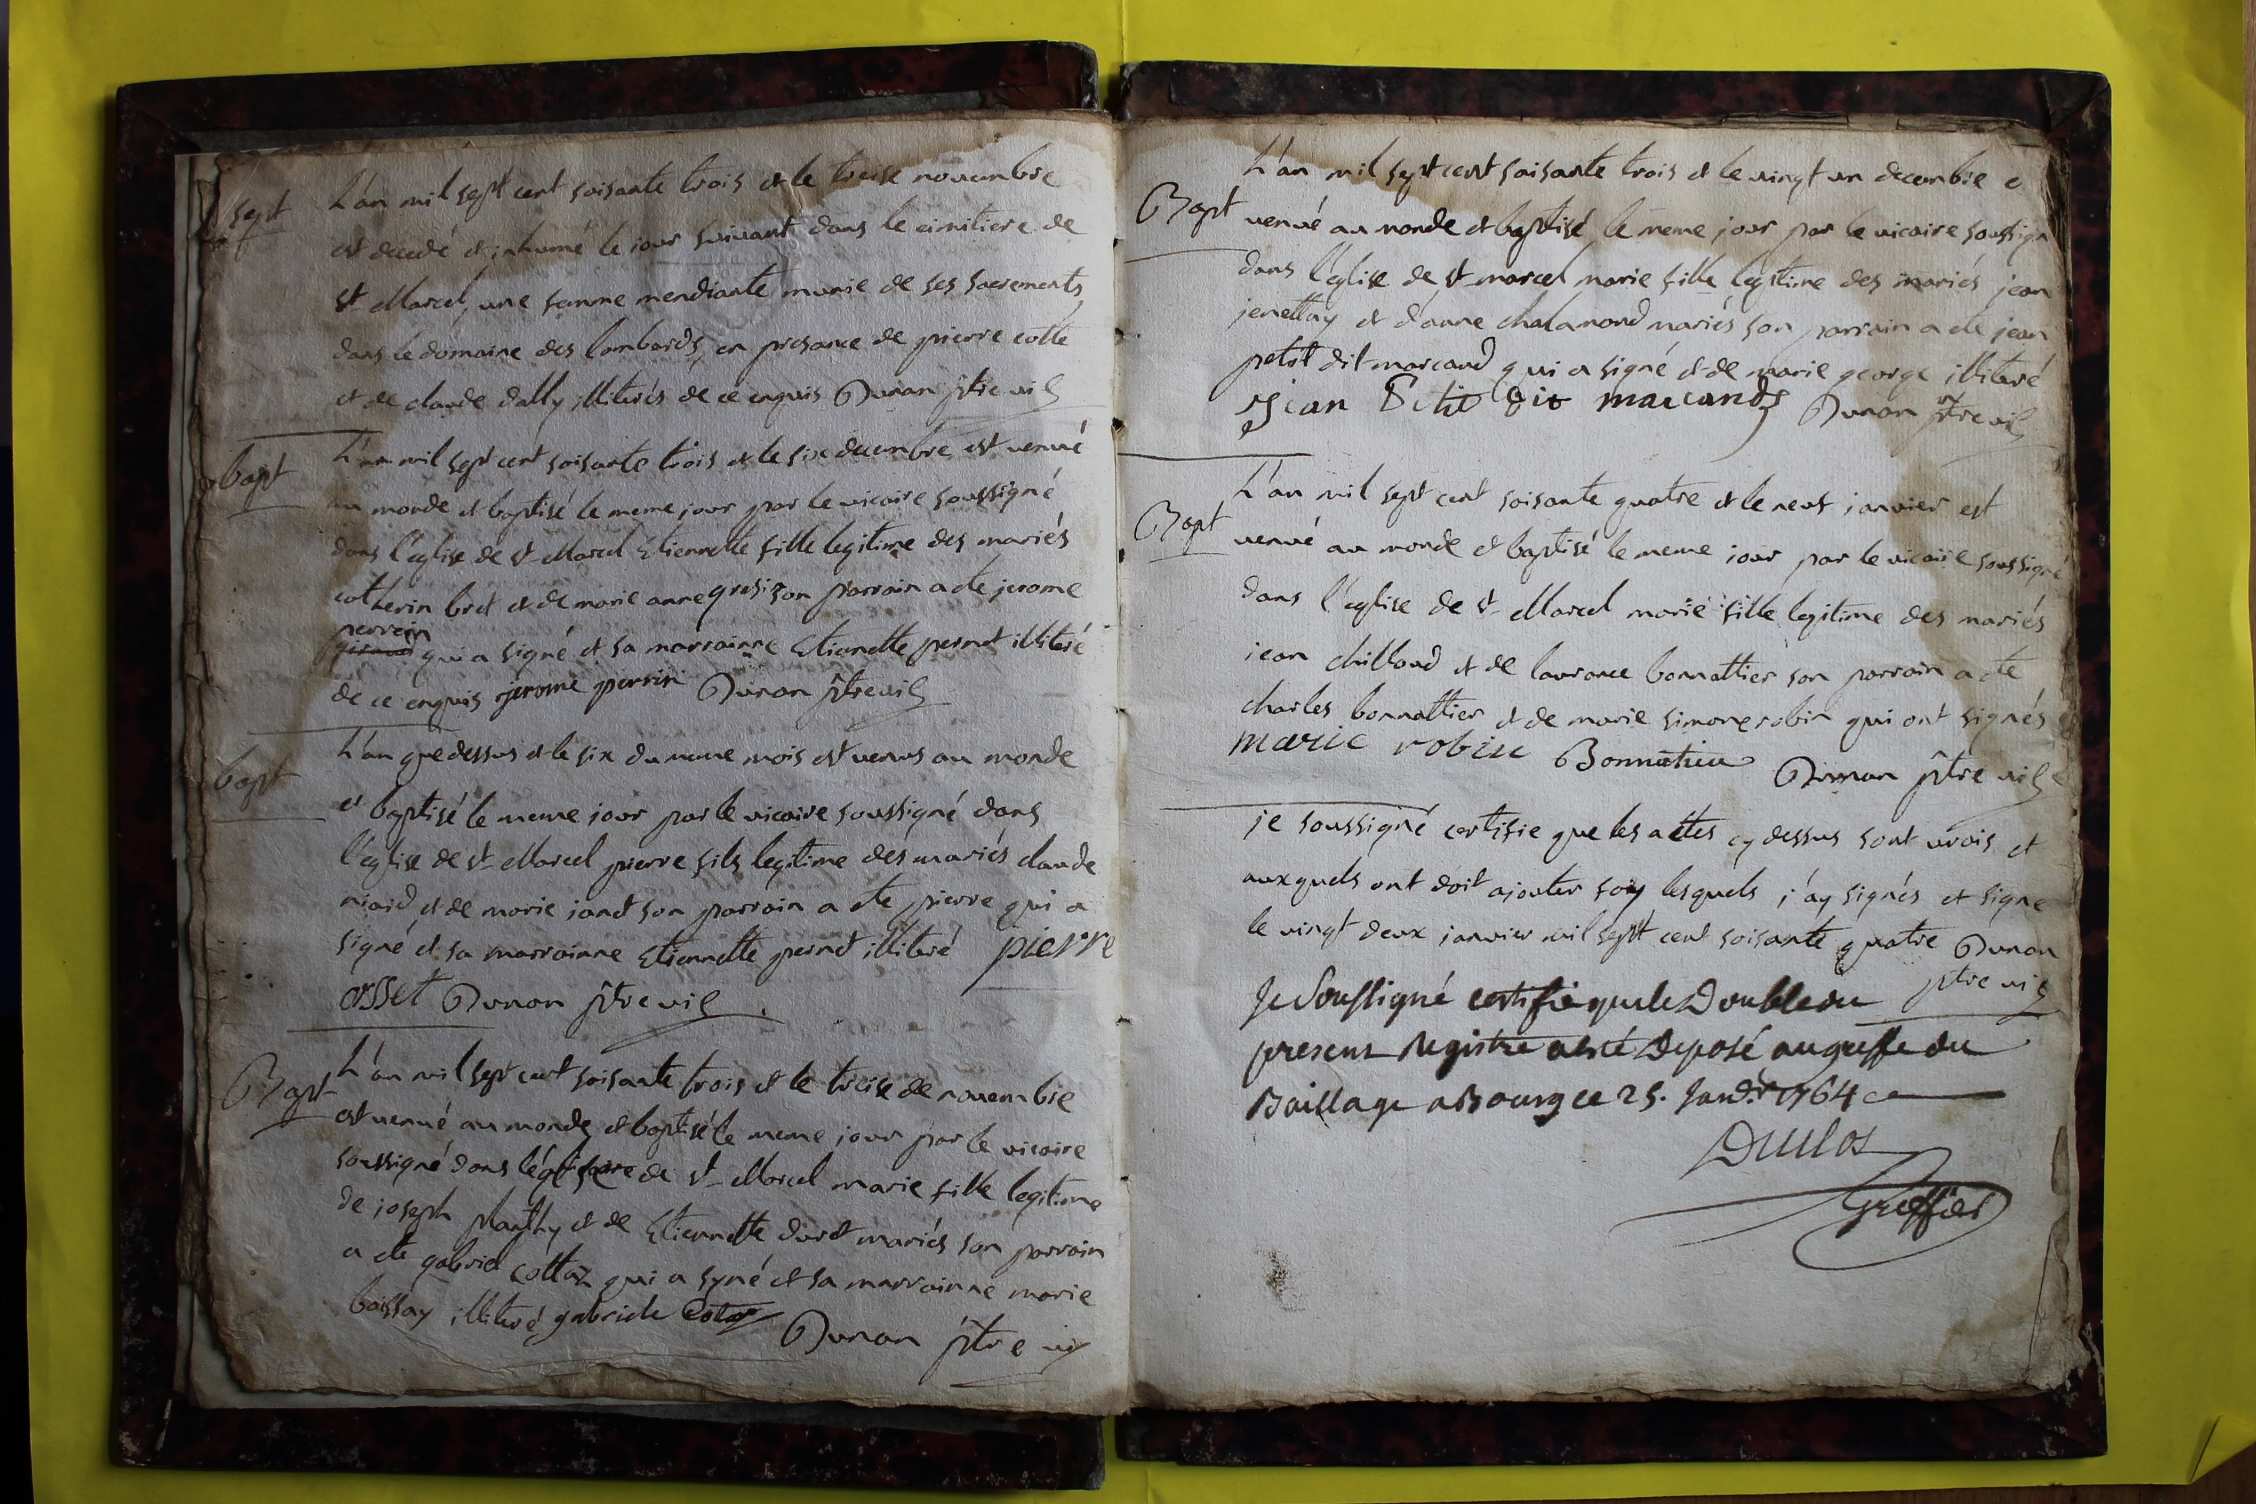 sept
L'an mil sept cent soisante trois et le treise novembre
est decedé et inhumé le jour suivant dans le cimitiere de
st Marcel, une femme mendiante munie de ses sacrements
dans le domaine des lombards, en presance de pierre cotte
et de claude dally illiterés de ce enquis Dunan ptre vic
bapt
L'an mil sept cent soisante trois et le six decembre est venué
au monde et baptisé le meme jour par le vicaire soussigné
dans l'eglise de st Marcel Etiennette fille legitime des mariés
cotherin bret et de marie anne son parrain a ete jerome
perrein
qui a signé et sa marrainne Etiennette pernet illiteré
de ce enquis jerome perrin Dunan ptre vic
bapt
L'an que dessus et le six du meme mois est venus au monde
et baptisé le meme jour par le vicaire soussigné dans
l'eglise de st Marcel pierre fils legitime des mariés claude
et de marie janet son parrain a ete pierre qui a
signé et sa marrainne Etiennette pernet illiteré pierre
osset Dunan ptre vic
Bapt
L'an mil sept cent soisante trois et le treise de novembre
est venué au monde et baptisé le meme jour par le vicaire
soussigné dans de st Marcel marie fille legitime
de joseph et de Etiennette duret mariés son parrain
a ete gabriel cottaz qui a syné et sa marrainne marie
baissay illiteré gabriele Cotaz Dunan ptre vic
L'an mil sept cent soisante trois et le vingt un decembre e
Bapt
venué au monde et baptisé le meme jour par le vicaire soussign
dans l'eglise de st marcel marie fille legitime des mariés jean
jenettay et d'anne chalamond mariés son parrain a ete jean
petit dit marcand qui a signé et de marie george illiteré
Jean Petit dit marcand Dunan ptre vic
L'an mil sept cent soisante quatre et le neuf janvier est
Bapt
venué au monde et baptisé le meme jour par le vicaire soussigné
dans l'eglise de st Marcel marie fille legitime des mariés
jean chilloud et de laurance bonnattier son parrain a ete
charles bonnattier et de marie simone robin qui ont signés
marie robin Bonnatieu Dunan ptre vic
je soussigné certifie que les actes cy dessus sont vrois et
auxquels ont doit ajouter foiy lesquels j'ay signés et signe
le vingt deux janvier mil sept cent soisante quatre Dunan
ptre vic
Je Soussigné certifie que le Double du
present Registre a été Deposé au greffe du
Baillage a Bourg ce 25. Janv.r 1764
Duclos
Greffier